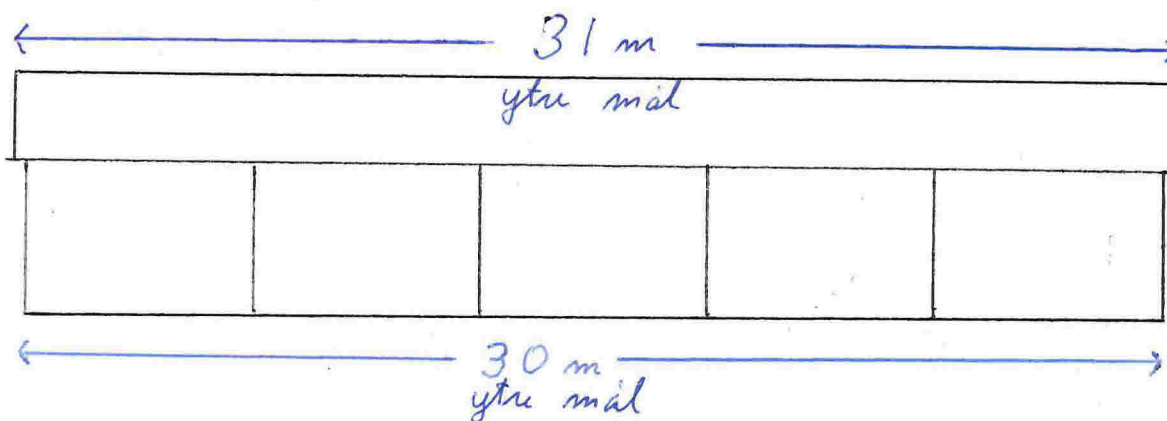 31 m
ytre mål
30 m
ytre mål